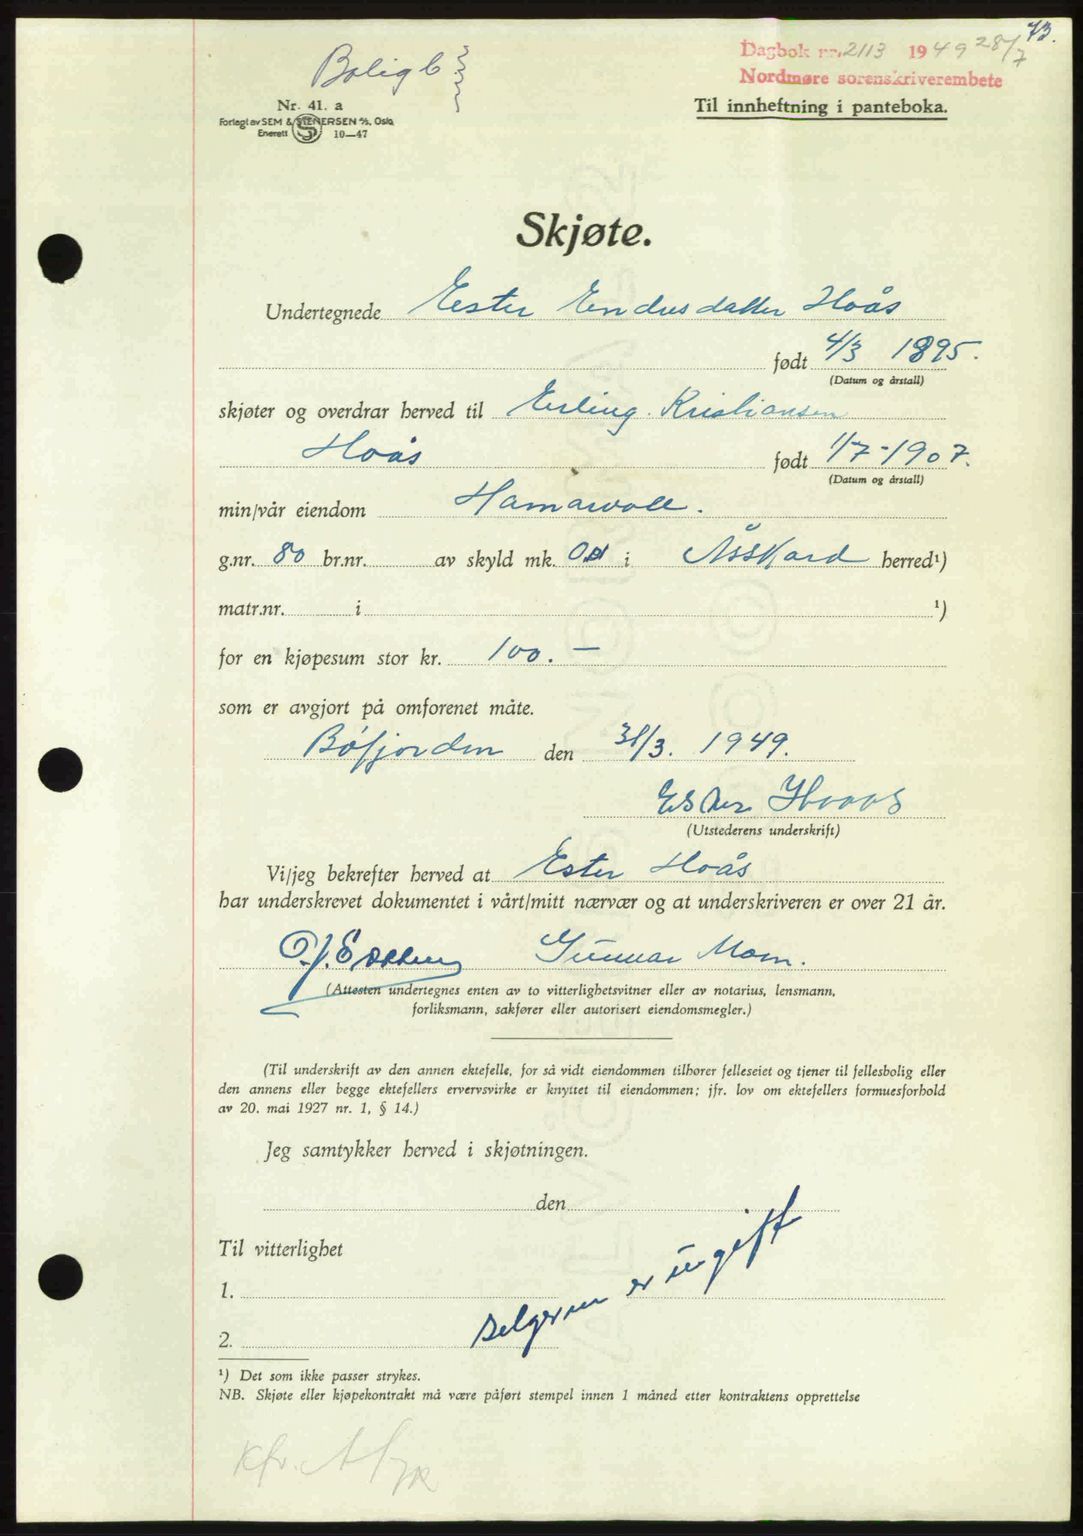 43.
Boligb
Dagbok nr. 2113 1949 28/7
Nordmøre sorenskriverembete
Nr. 41. a
Til innheftning i panteboka.
Forlagt av SEM & STENERSEN A/S, Oslo
Enerett 10—47
Skjøte.
Undertegnede Ester Endresdatter Hoås
født 4/3 1895.
(Datum og årstall)
skjøter og overdrar herved til Erling Kristiansen
Hoås født 1/7-1907.
(Datum og årstall)
min/vår eiendom Hamarvoll.
g.nr. 80 br.nr. av skyld mk. i Åsskard herred¹)
matr.nr. i ¹)
for en kjøpesum stor kr. 100.—
som er avgjort på omforenet måte.
Bøfjorden den 31/3. 1949.
Ester Hoaas
(Utstederens underskrift)
Vi/jeg bekrefter herved at Ester Hoås
har underskrevet dokumentet i vårt/mitt nærvær og at underskriveren er over 21 år.
Gunnar Moen.
(Attesten undertegnes enten av to vitterlighetsvitner eller av notarius, lensmann,
forliksmann, sakfører eller autorisert eiendomsmegler.)
(Til underskrift av den annen ektefelle, for så vidt eiendommen tilhører felleseiet og tjener til fellesbolig eller
den annens eller begge ektefellers ervervsvirke er knyttet til eiendommen; jfr. lov om ektefellers formuesforhold
av 20. mai 1927 nr. 1, § 14.)
Jeg samtykker herved i skjøtningen.
den
Til vitterlighet
1.
selgeren er ugift
2.
¹) Det som ikke passer strykes.
NB. Skjøte eller kjøpekontrakt må være påført stempel innen 1 måned etter kontraktens opprettelse